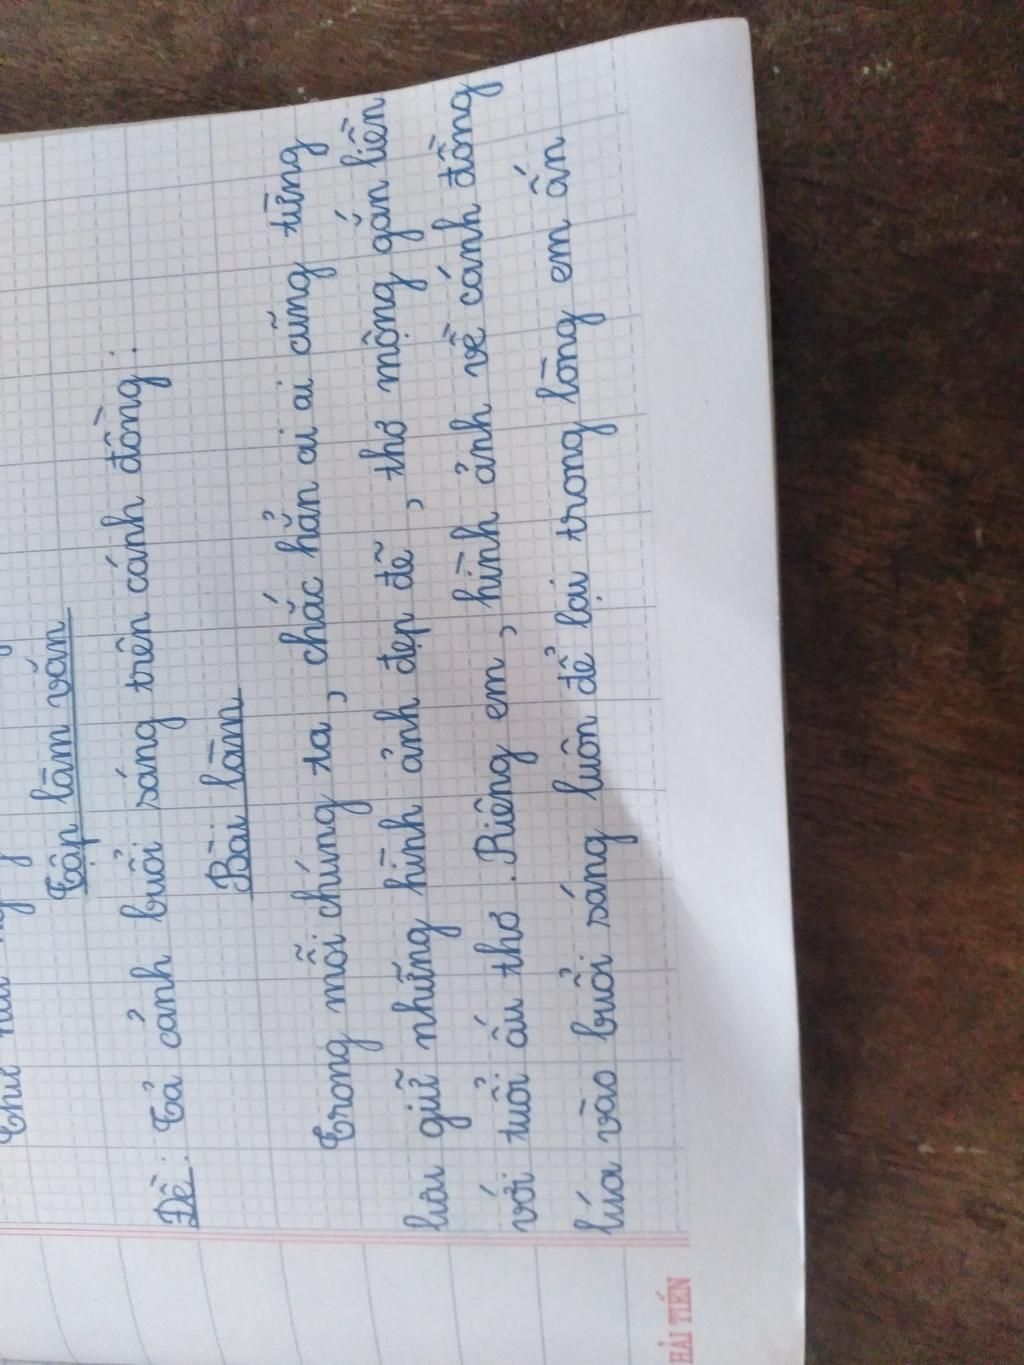 Tập làm văn
Đề: Tả cảnh buổi sáng trên cánh đồng.
Bài làm
Trong mỗi chúng ta, chắc hẳn ai ai cũng từng
lưu giữ những hình ảnh đẹp đẽ, thơ mộng gắn liền
với tuổi ấu thơ. Riêng em, hình ảnh về cánh đồng
lúa vào buổi sáng luôn để lại trong lòng em ấn
HẢI TIẾN